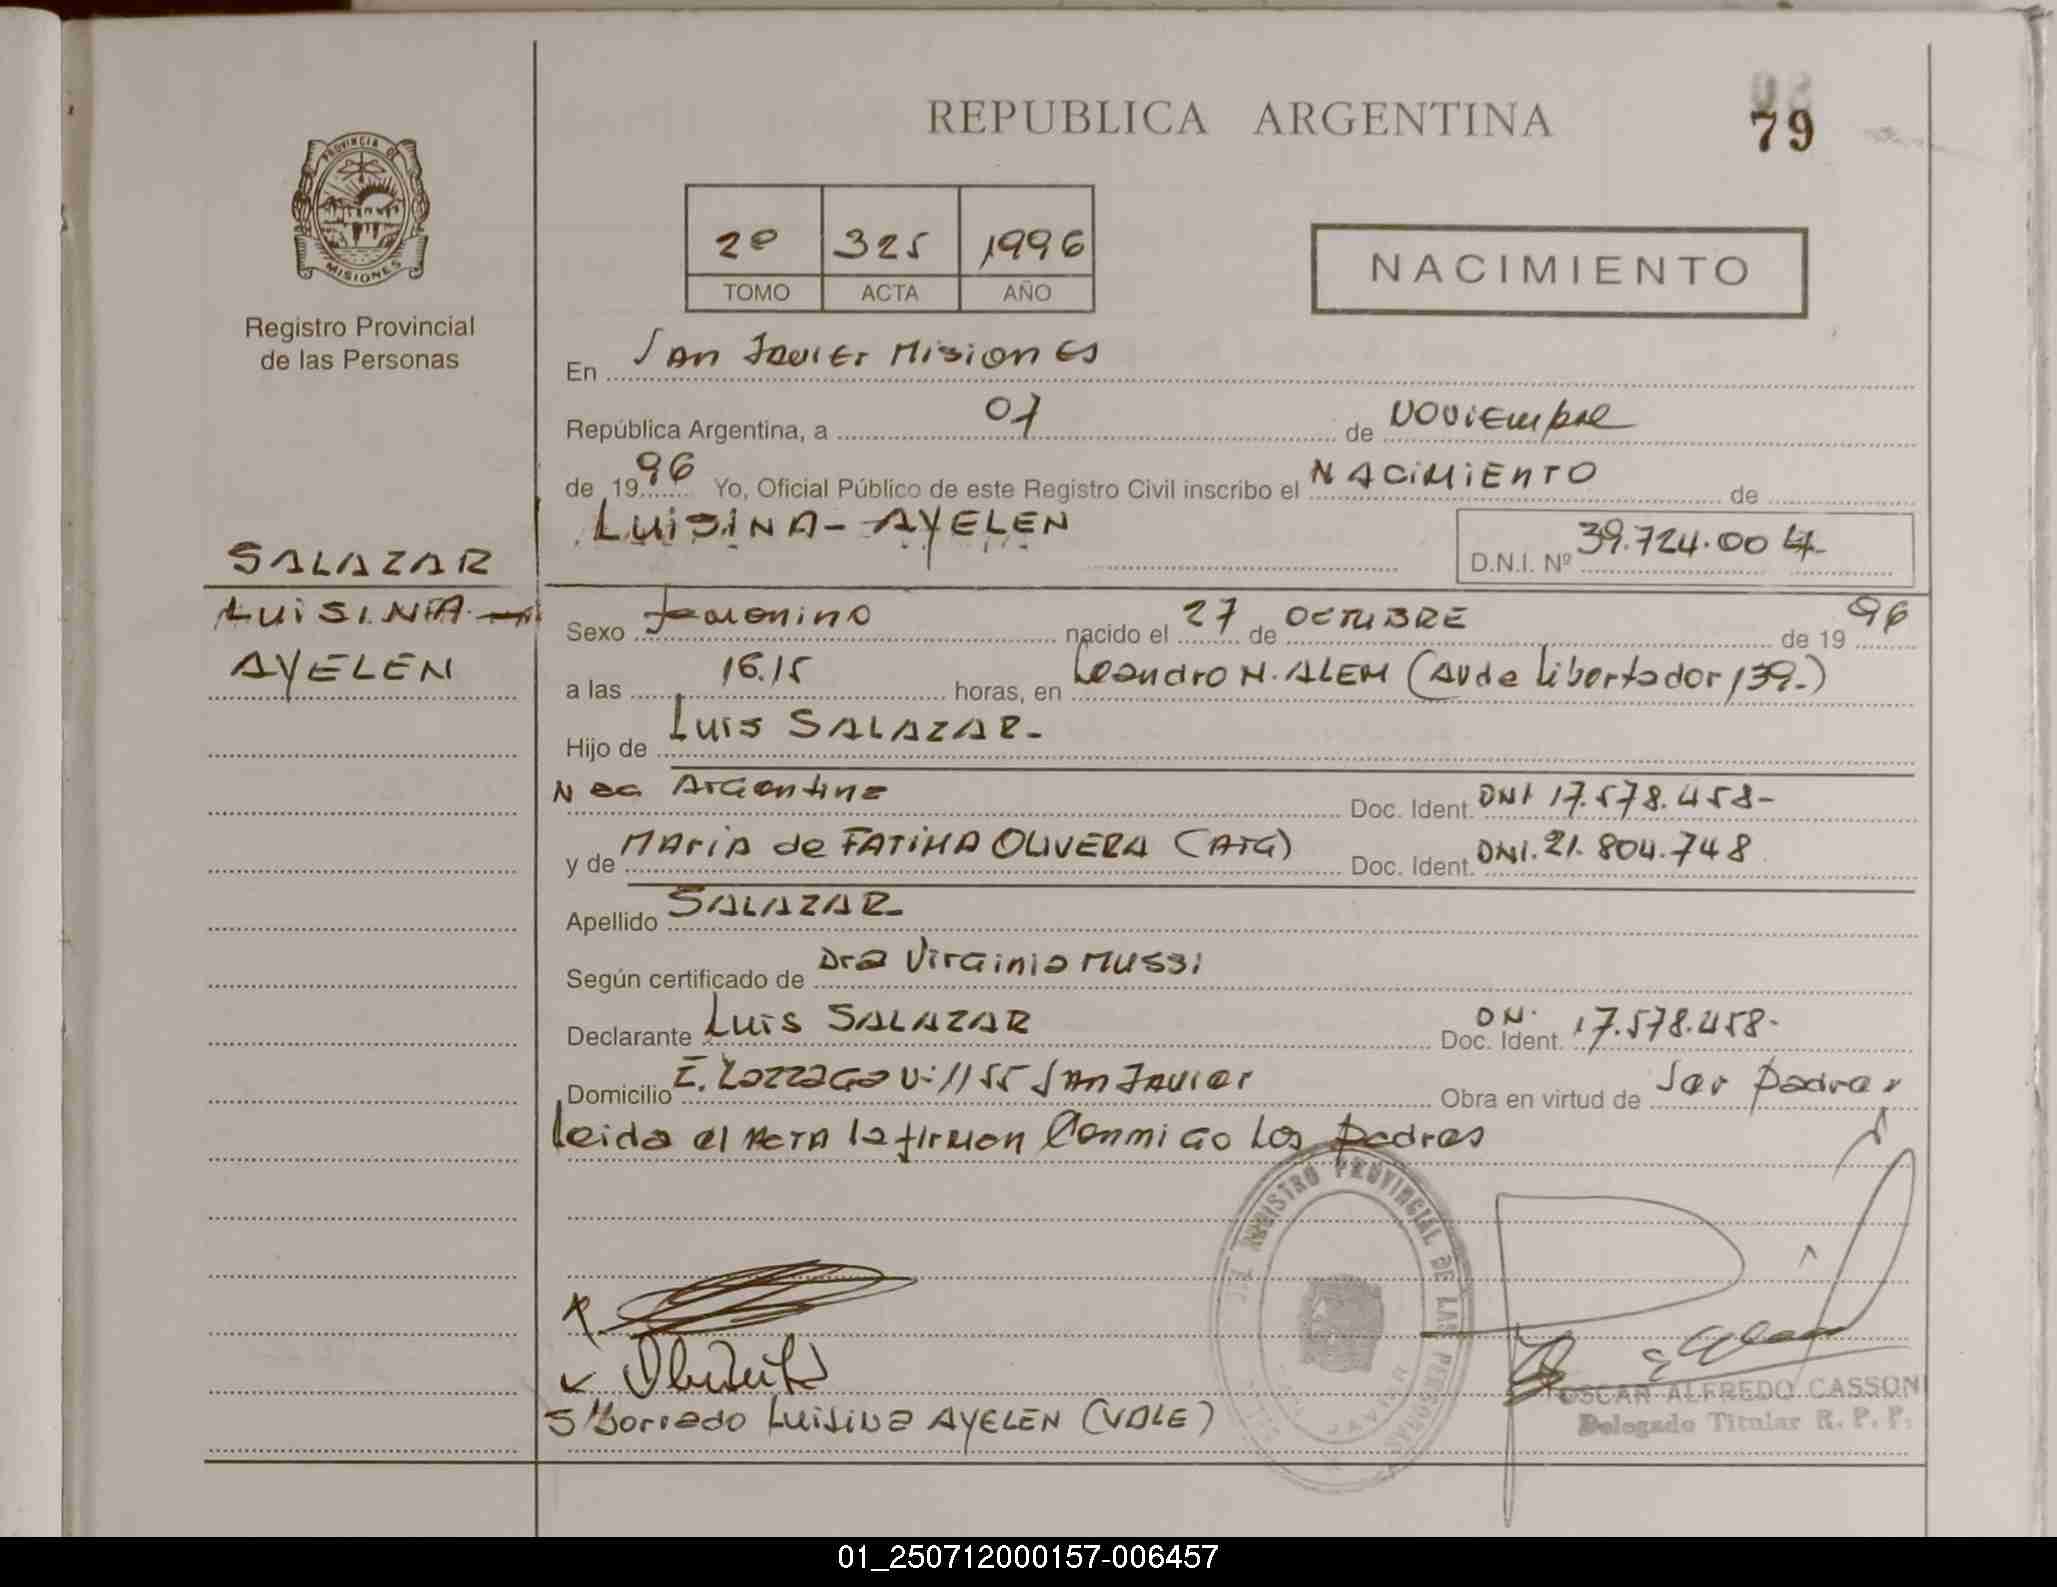 REPUBLICA ARGENTINA
79
PROVINCIA DE
MISIONES
Registro Provincial
de las Personas
2º 325 1996
TOMO ACTA AÑO
NACIMIENTO
En San Javier Misiones
República Argentina, a 07 de Noviembre
de 1996 Yo, Oficial Público de este Registro Civil inscribo el NACIMIENTO de
LUISINA - AYELEN
D.N.I. Nº 39.724.004-
SALAZAR
LUISINA -
AYELEN
Sexo Femenino nacido el 27 de OCTUBRE de 1996
a las 16.15 horas, en Leandro N. ALEM (Av de Libertador 139-)
Hijo de Luis SALAZAR-
Nac Argentina Doc. Ident. DNI 17.578.458-
y de MARIA de FATIMA OLIVERA (ARG) Doc. Ident. DNI. 21.804.748
Apellido SALAZAR-
Según certificado de Dra Virginia MUSSI
Declarante Luis SALAZAR Doc. Ident. DN. 17.578.458-
Domicilio 1155 San Javier Obra en virtud de Ser padre
Leida el ACTA la firman Conmigo Los padres
REGISTRO PROVINCIAL DE LAS PERSONAS
SAN JAVIER
S/Borrado Luisina AYELEN (VALE)
OSCAR ALFREDO CASSONI
Delegado Titular R. P. P.
01_250712000157-006457